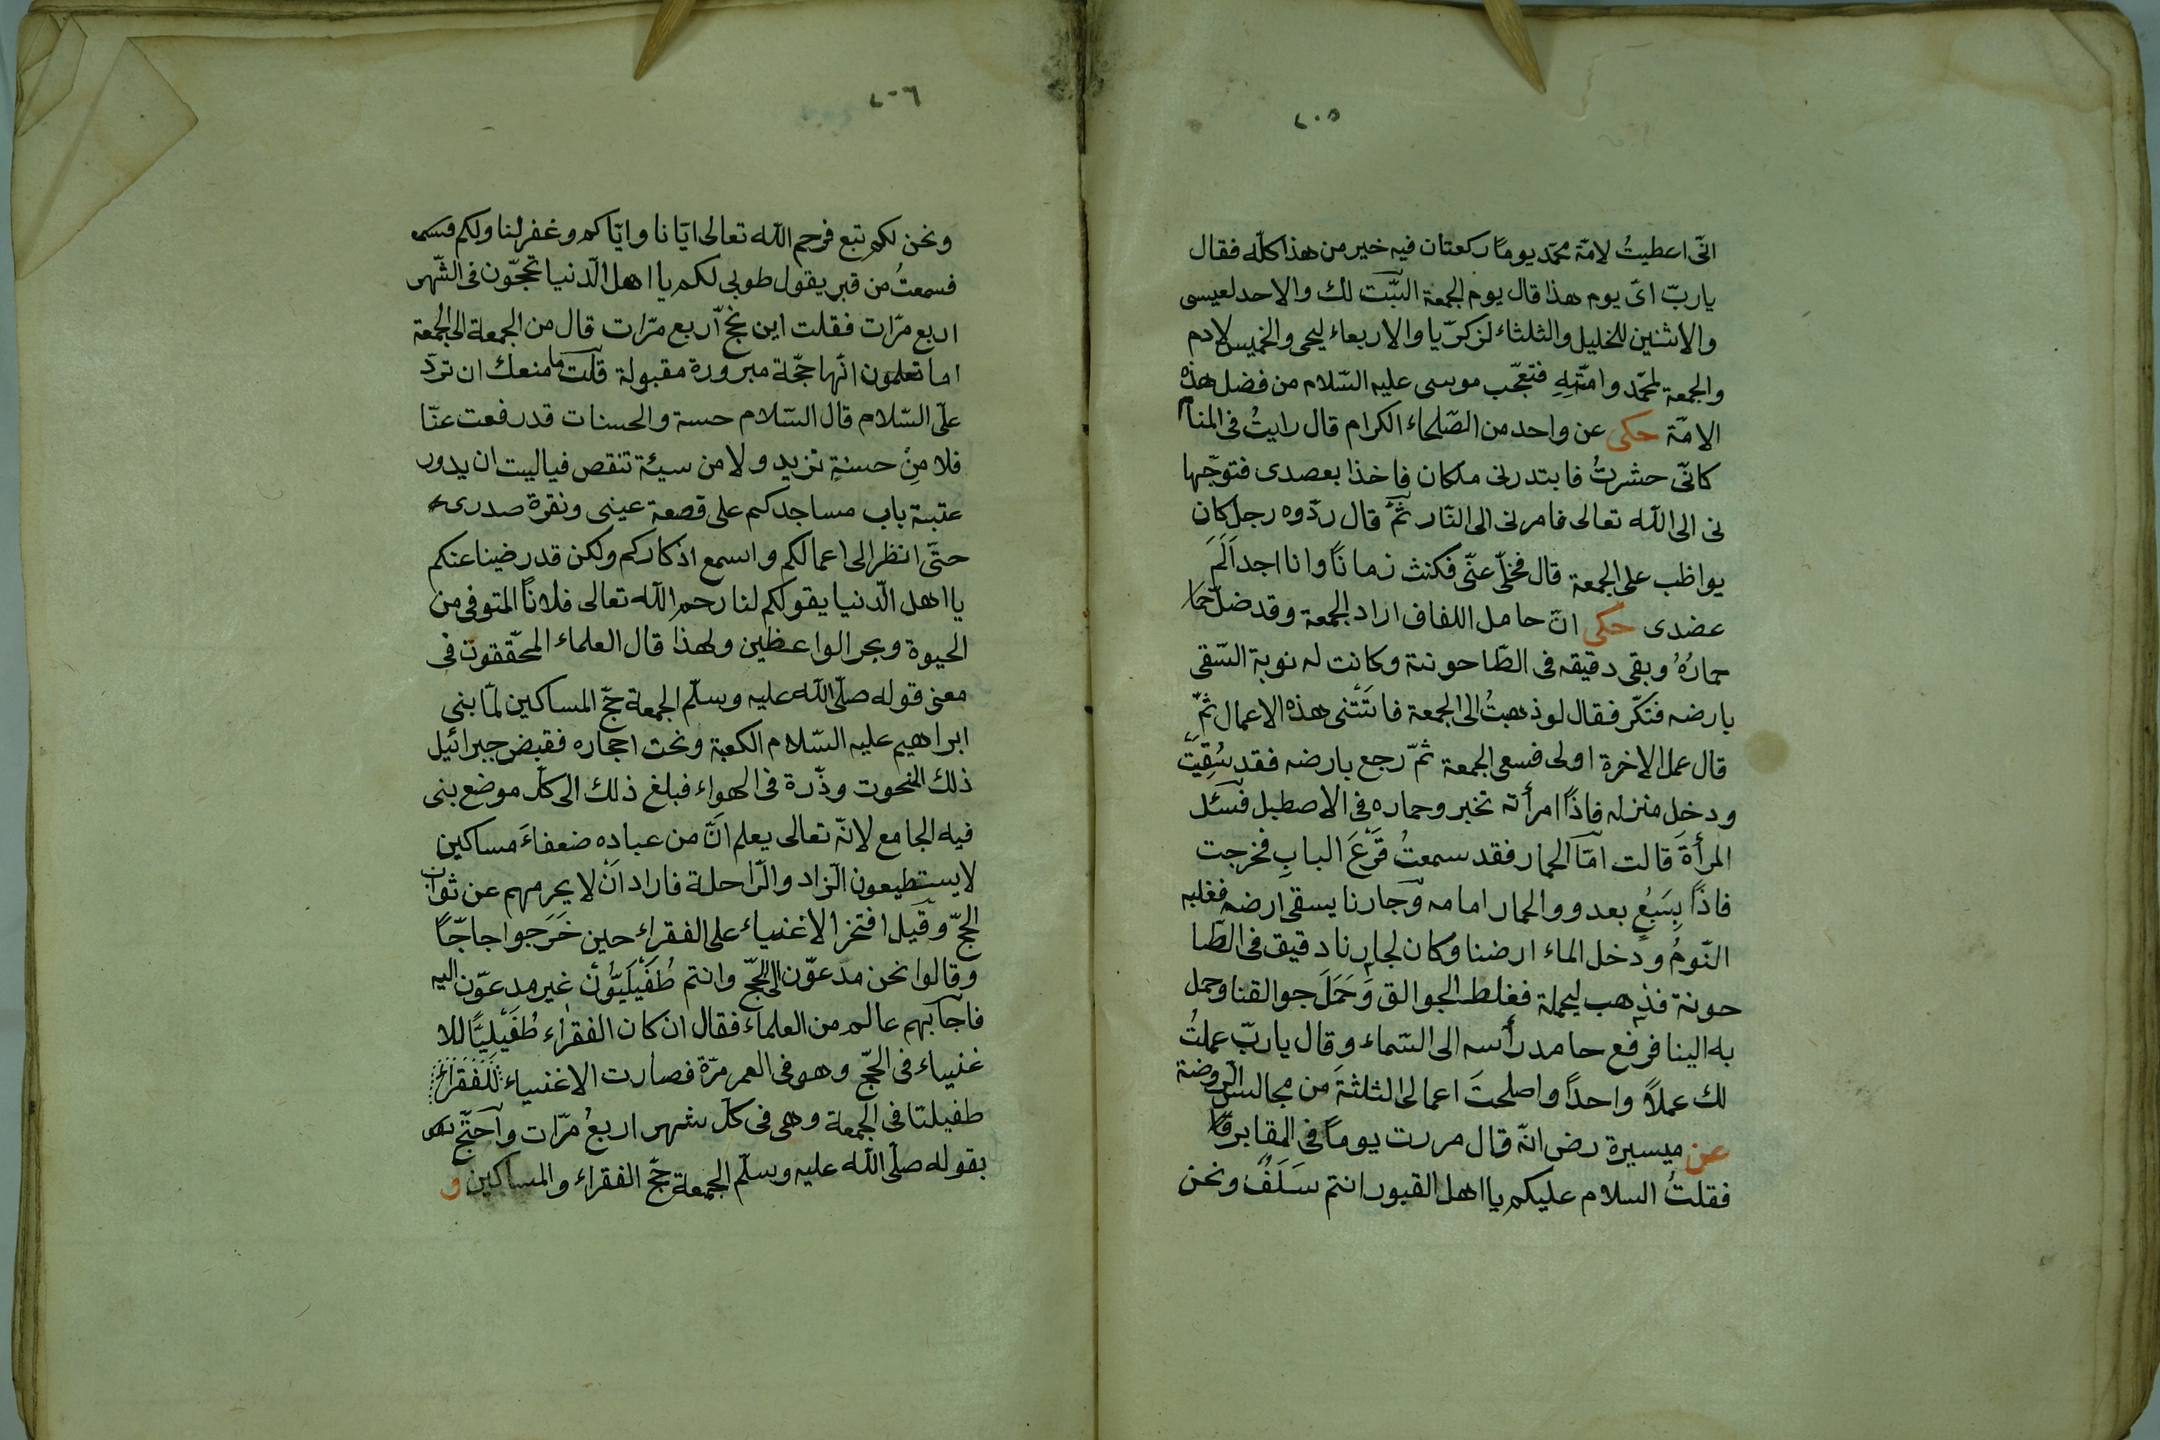 ٢٠٥
انّى اعطيتُ لامّة محمّد يومًا ركعتان فيه خير من هذا كلّه فقال
ياربّ اىّ يوم هذا قال يوم الجمعة السّبت لك والاحد لعيسى
والاثنين للخليل والثلثاء لزكرّيا والاربعاء ليحى والخميس لادم
والجمعة لمحمّد وامّتِهِ فتعجّب موسى عليه السّلام من فضل هذه
الامّة حكى عن واحد من الصّلحاء الكرام قال رايتُ فى المنام
كانّى حشرتُ فابتدرنى ملكان فاخذا بعصدى فتوجّها
نى الى اللّه تعالى فامرنى الى النّار ثمّ قال ردّوه رجل كان
يواظب على الجمعة قال فخلّ عنّى فكنث زمانًا وانا اجد اَلَمَ
عضدى حكى انّ حامل اللفاف اراد الجمعة وقد ضلّ
حمارُهُ وبقى دقيقه فى الطّاحونة وكانت له نوبة السّقى
بارضه فتكّر فقال لو ذهبتُ الى الجمعة فاتَتْنى هذه الاعمال ثمّ
قال عمل الاخرة اولى فسعى الجمعة ثمّ رجع بارضه فقد سُقِيَت
ودخل منزله فاذًا امرأته تخبر وحماره فى الاصطبل فسَئل
المرأةَ قالت امّا الحمار فقد سمعتُ قَرْعَ البابِ فخرجت
فاذًا بِسَبُعٍ بعدو والحمار امامه وجارنا يسقى ارضه فغلبه
النّومُ ودخل الماء ارضنا وكان لجارنا دقيق فى الطّا
حونة فذهب ليحملة فغلط الجوالق وَحَمَلَ جوالقنا وحمل
به الينا فرفع حامد رأسه الى السّماء وقال ياربّ عملتُ
لك عملاً واحدًا واصلحتَ اعمالى الثلثةَ من مجالس الرّوضة
عن ميسيرة رض انّه قال مررت يومًا فى المقابر
فقلتُ السلام عليكم يا اهل القبور انتم سَلَفٌ ونحن
٢٠٦
ونحن لكم تبع فرحم اللّه تعالى ايّانا وايّاكم وغفرلنا ولكم
فسمعتُ من قبر يقول طوبى لكم يا اهل الّدنيا تحجّون فى الشّهر
اربع مرّات فقلت اين نحجّ اربع مرّات قال من الجمعة الى الجمعة
اما تعلمون انّها حجّة مبرورة مقبولة قلت ما منعك ان تردّ
علىّ السّلام قال السّلام حسة والحسنات قد رفعت عنّا
فلا مِنْ حسنةٍ تزيد ولا من سيئة تنقص فياليت ان يدور
عتبة باب مساجدكم على قصعة عينى ونقرة صدرى
حتّى انظر الى اعمالكم واسمع اذكاركم ولكن قد رضينا عنكم
يا اهل الّدنيا يقولكم لنا رحم اللّه تعالى فلانًا المتوفى من
الحيوة وبحر الواعظين ولهذا قال العلماء المحقّقون فى
معنى قوله صلّى اللّه عليه وسلّم الجمعة حجّ المساكين لمّا بنى
ابراهيم عليه السّلام الكعبة ونحت احجاره فقبض جبرائيل
ذلك المنحوت وذّرة فى الهواء فبلغ ذلك الى كلّ موضع بنى
فيه الجامع لانّه تعالى يعلم انَّ من عباده ضعفاءَ مساكين
لايستطيعون الّزاد والّراحلة فاراد اَنْ لا يحرمهم عن ثواب
الحجّ وقيل افتخر الاغنياء على الفقراء حين خَرَجوا حاجّاً
وقالوا نحن مدعوّن الى الحجّ وانتم طُفَيْليّون غير مدعوّن اليه
فاجابهم عالم من العلماء فقال ان كان الفقراء طُفَيْليّاً للا
غنياء فى الحجّ وهو فى العمر مرّة فصارت الاغنياء للفقراء
طفيلتا فى الجمعة وهى فى كلّ شهر اربعُ مرّات واحتجّ
بقوله صلّى اللّه عليه وسلّم الجمعة حجّ الفقراء والمساكين و